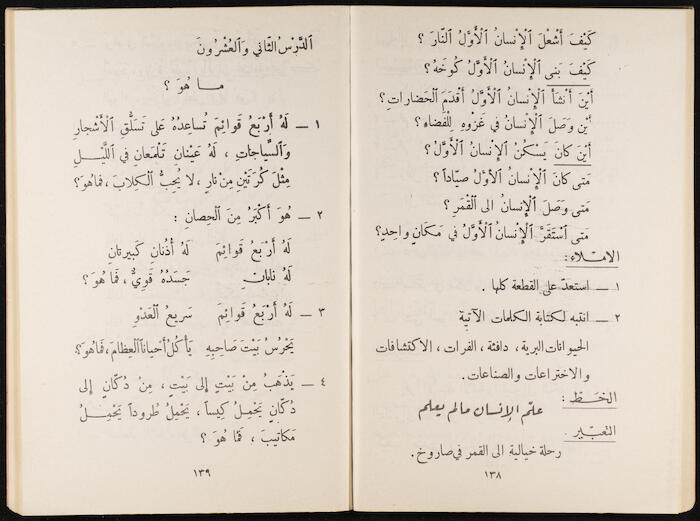 كَيْفَ أَشْعَلَ ٱلْإِنْسانُ ٱلْأَوَّلُ ٱلنّارَ ؟
كَيْفَ بَنى ٱلْإِنْسانُ ٱلْأَوَّلُ كُوخَهُ ؟
أَيْنَ أَنْشَأَ ٱلْإِنْسانُ ٱلْأَوَّلُ أَقْدَمَ ٱلْحَضاراتِ ؟
أَيْنَ وَصَلَ ٱلْإِنْسانُ في غَزْوِهِ لِلْفَضاءِ ؟
أَيْنَ كانَ يَسْكُنُ ٱلْإِنْسانُ ٱلْأَوَّلُ ؟
مَتى كانَ ٱلْإِنْسانُ ٱلْأَوَّلُ صَيّاداً ؟
مَتى وَصَلَ ٱلْإِنْسانُ الى ٱلْقَمَرِ ؟
مَتى ٱسْتَقَرَّ ٱلْإِنْسانُ ٱلْأَوَّلُ في مَكانٍ واحِدٍ ؟
الاملاء :
١ ــ استعدّ على القطعة كلها .
٢ ــ انتبه لكتابة الكلمات الآتية
الحيوانات البرية ، دافئة ، الفرات ، الاكتشافات
والاختراعات والصناعات .
الخَـطّ :
علّم الإنسان مالم يعلم
التعبير .
رحلة خيالية الى القمر في صاروخ .
١٣٨
ٱلدَّرْسُ ٱلثّاني وَٱلْعُشْرُونَ
ما هُوَ ؟
١ ــ لَهُ أَرْبَعُ قَوائِمَ تُساعِدُهُ عَلى تَسَلُّقِ ٱلْأَشْجارِ
وَٱلسِّياجاتِ ، لَهُ عَيْنانِ تَلْمَعانِ في ٱللَّيْلِ
مِثْلَ كُرَتَيْنِ مِنْ نارٍ ، لا يُحِبُّ ٱلْكِلابَ ، فَما هُوَ ؟
٢ ــ هُوَ أَكْبَرُ مِنَ ٱلْحِصانِ :
لَهُ أَرْبَعُ قَوائِمَ لَهُ أُذُنانِ كَبيرتانِ
لَهُ نابانِ جَسَدُهُ قَوِيٌّ ، فَما هُوَ ؟
٣ ــ لَهُ أَرْبَعُ قَوائِمَ سَريعُ ٱلْعَدْوِ
يَحْرُسُ بَيْتَ صَاحِبِهِ يَأكُلُ أَحْياناً ٱلْعِظامَ ، فَما هُوَ ؟
٤ ــ يَذْهَبُ مِنْ بَيْتٍ إِلى بَيْتٍ ، مِنْ دُكّانٍ إِلى
دُكّانٍ يَحْمِلُ كيساً ، يَحْمِلُ طُروداً يَحْمِلُ
مَكاتيبَ ، فَما هُوَ ؟
١٣٩